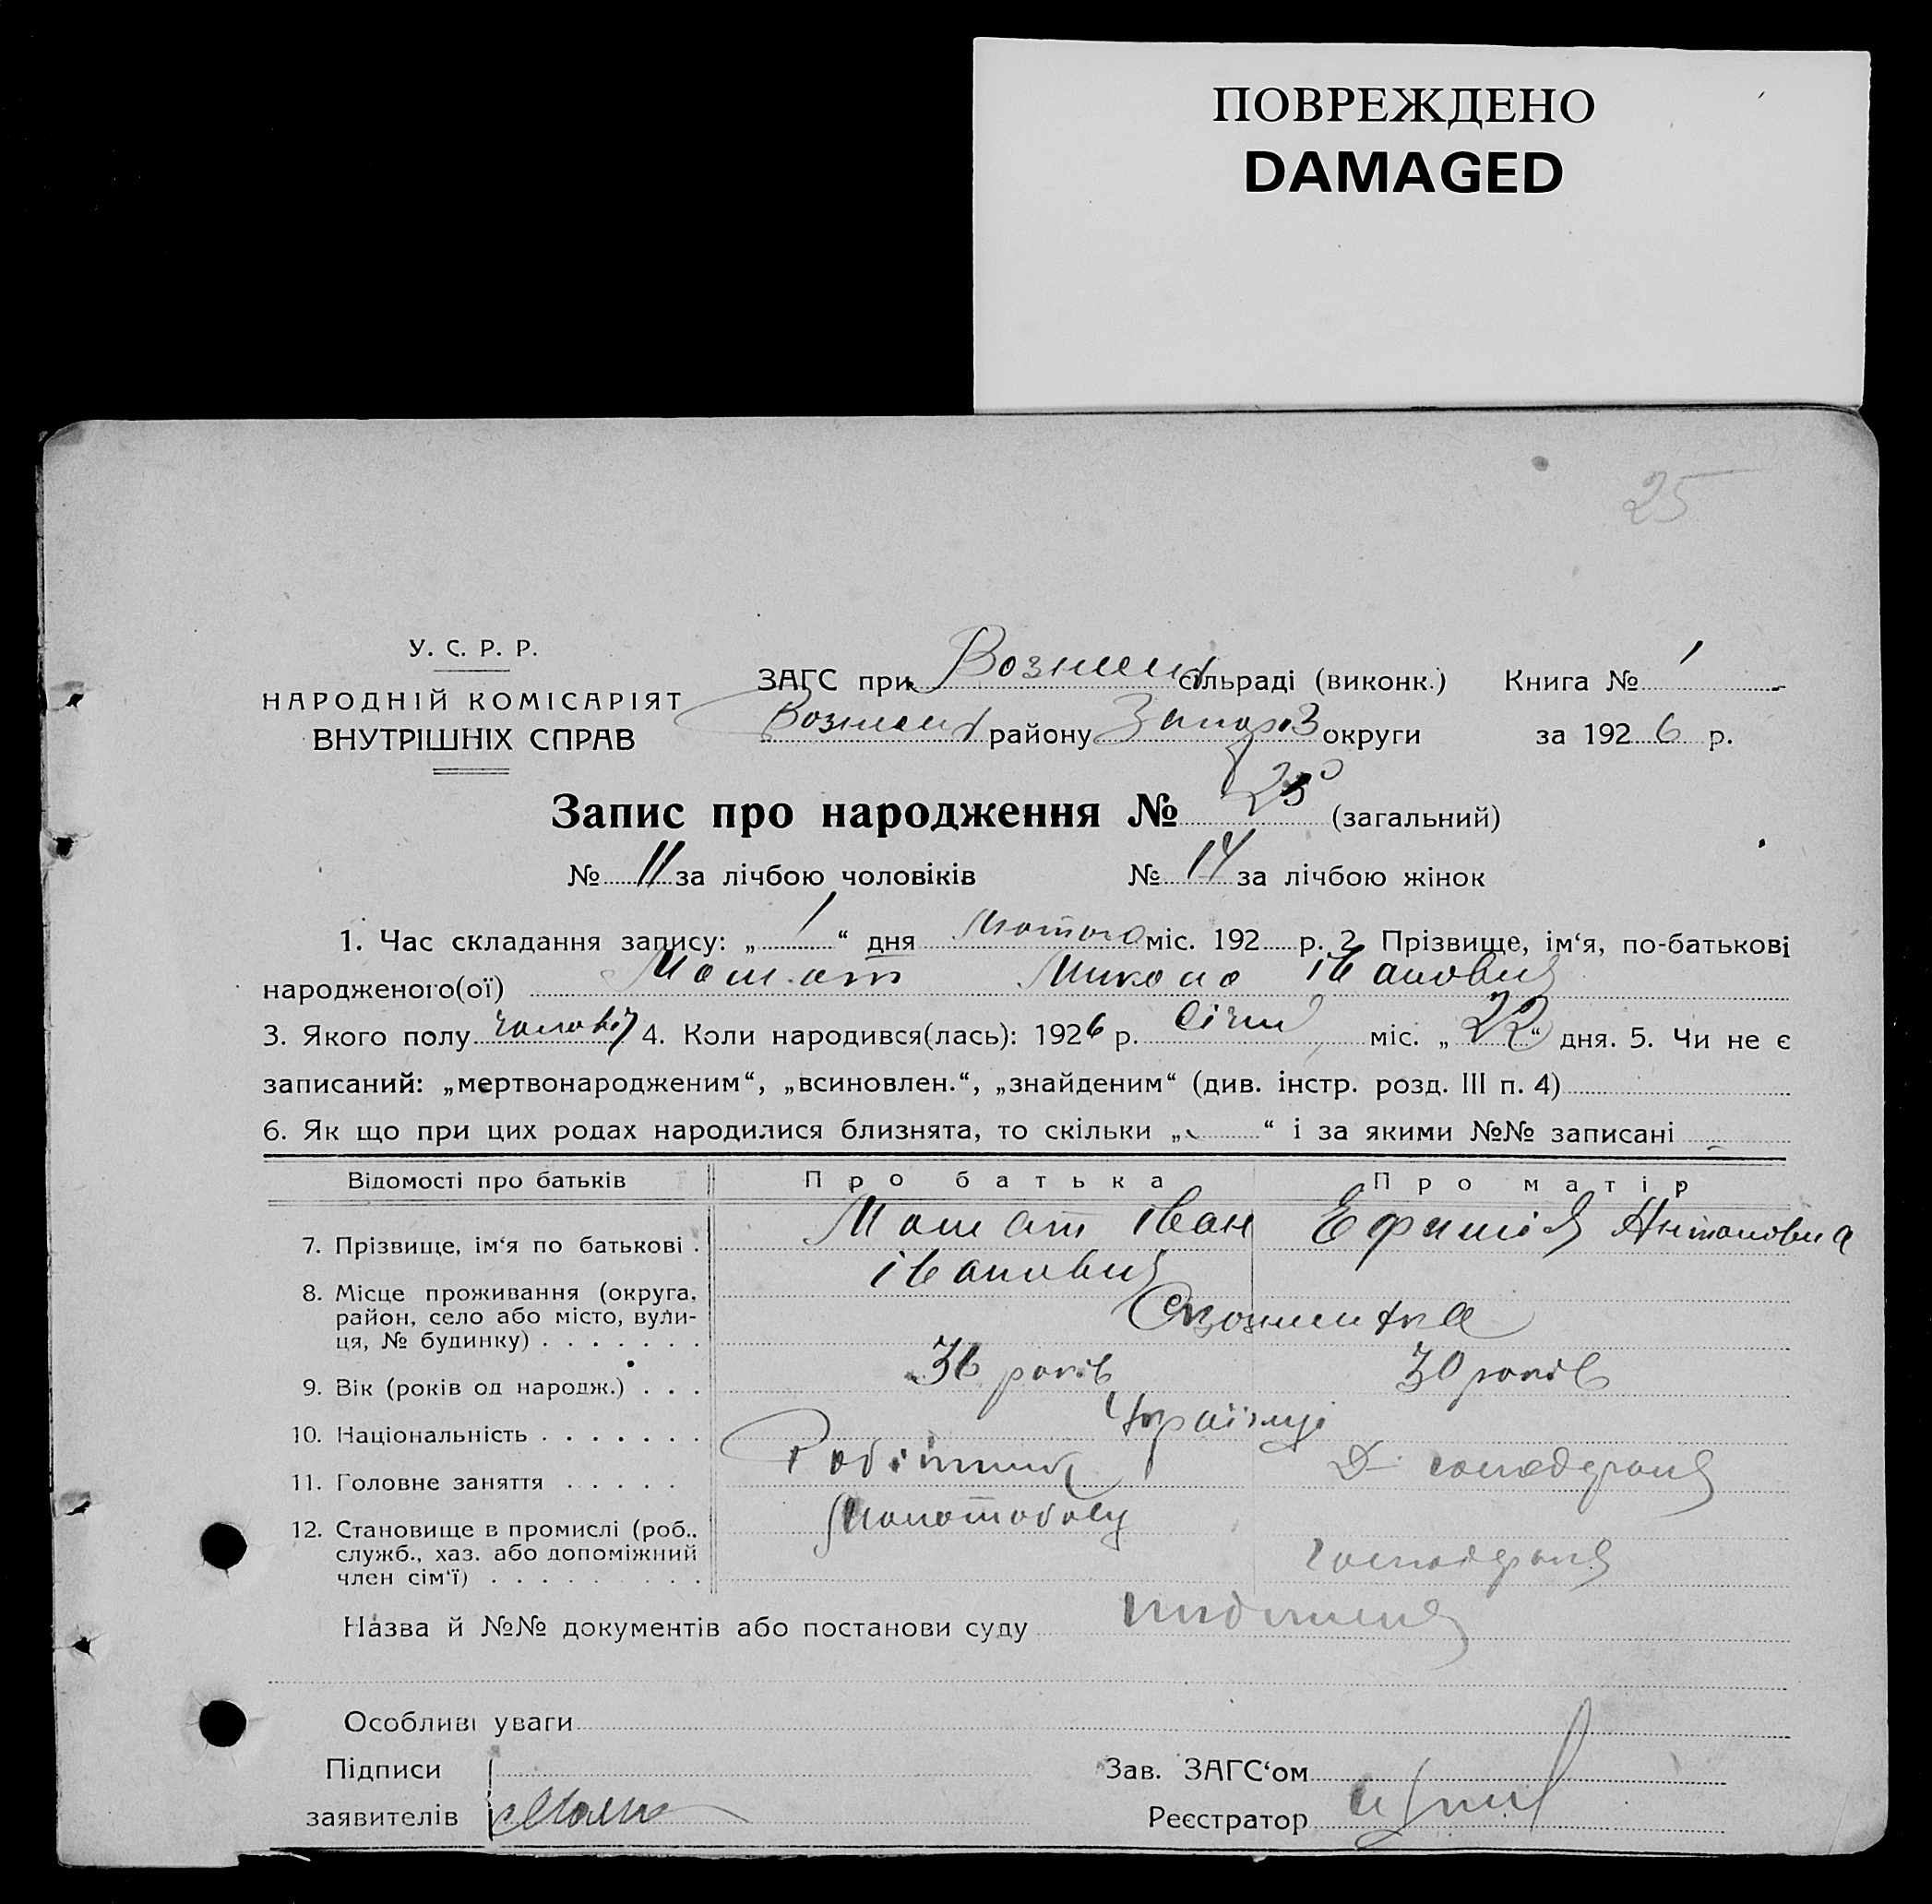 ПОВРЕЖДЕНО
DAMAGED
25
У. С. Р. Р.
НАРОДНІЙ КОМІСАРІЯТ
ВНУТРІШНІХ СПРАВ
ЗАГС при Вознесен сільраді (виконк.) Книга № 1
Вознесен району Запоріз округи за 1926 р.
Запис про народження № 25 (загальний)
№ 11 за лічбою чоловіків № 14 за лічбою жінок
1. Час складання запису: „ 1 “ дня Лютого міс. 192 р. 2 Прізвище, ім‘я, по-батькові
народженого(ої) Микола іванович
3. Якого полу чолові 4. Коли народився(лась): 1926 р. Січня міс. „ 22 “ дня. 5. Чи не є
записаний: „мертвонародженим“, „всиновлен.“, „знайденим“ (див. інстр. розд. III п. 4)
6. Як що при цих родах народилися близнята, то скільки „ “ і за якими №№ записані
Відомості про батьків Про батька Про матір
7. Прізвище, ім‘я по батькові . Іван Антоновна
іванович
8. Місце проживання (округа,
район, село або місто, вули-
ця, № будинку) . . . . . . .
9. Вік (років од народж.) . . . 36 років 30 років
10. Національність . . . . . . . Українці
11. Головне заняття . . . . . Робітник
12. Становище в промислі (роб..
служб., хаз. або допоміжний
член сім‘ї) . . . . . . . . . господарка
Назва й №№ документів або постанови суду
Особливі уваги
Підписи Зав. ЗАГС‘ом
заявителів Реєстратор